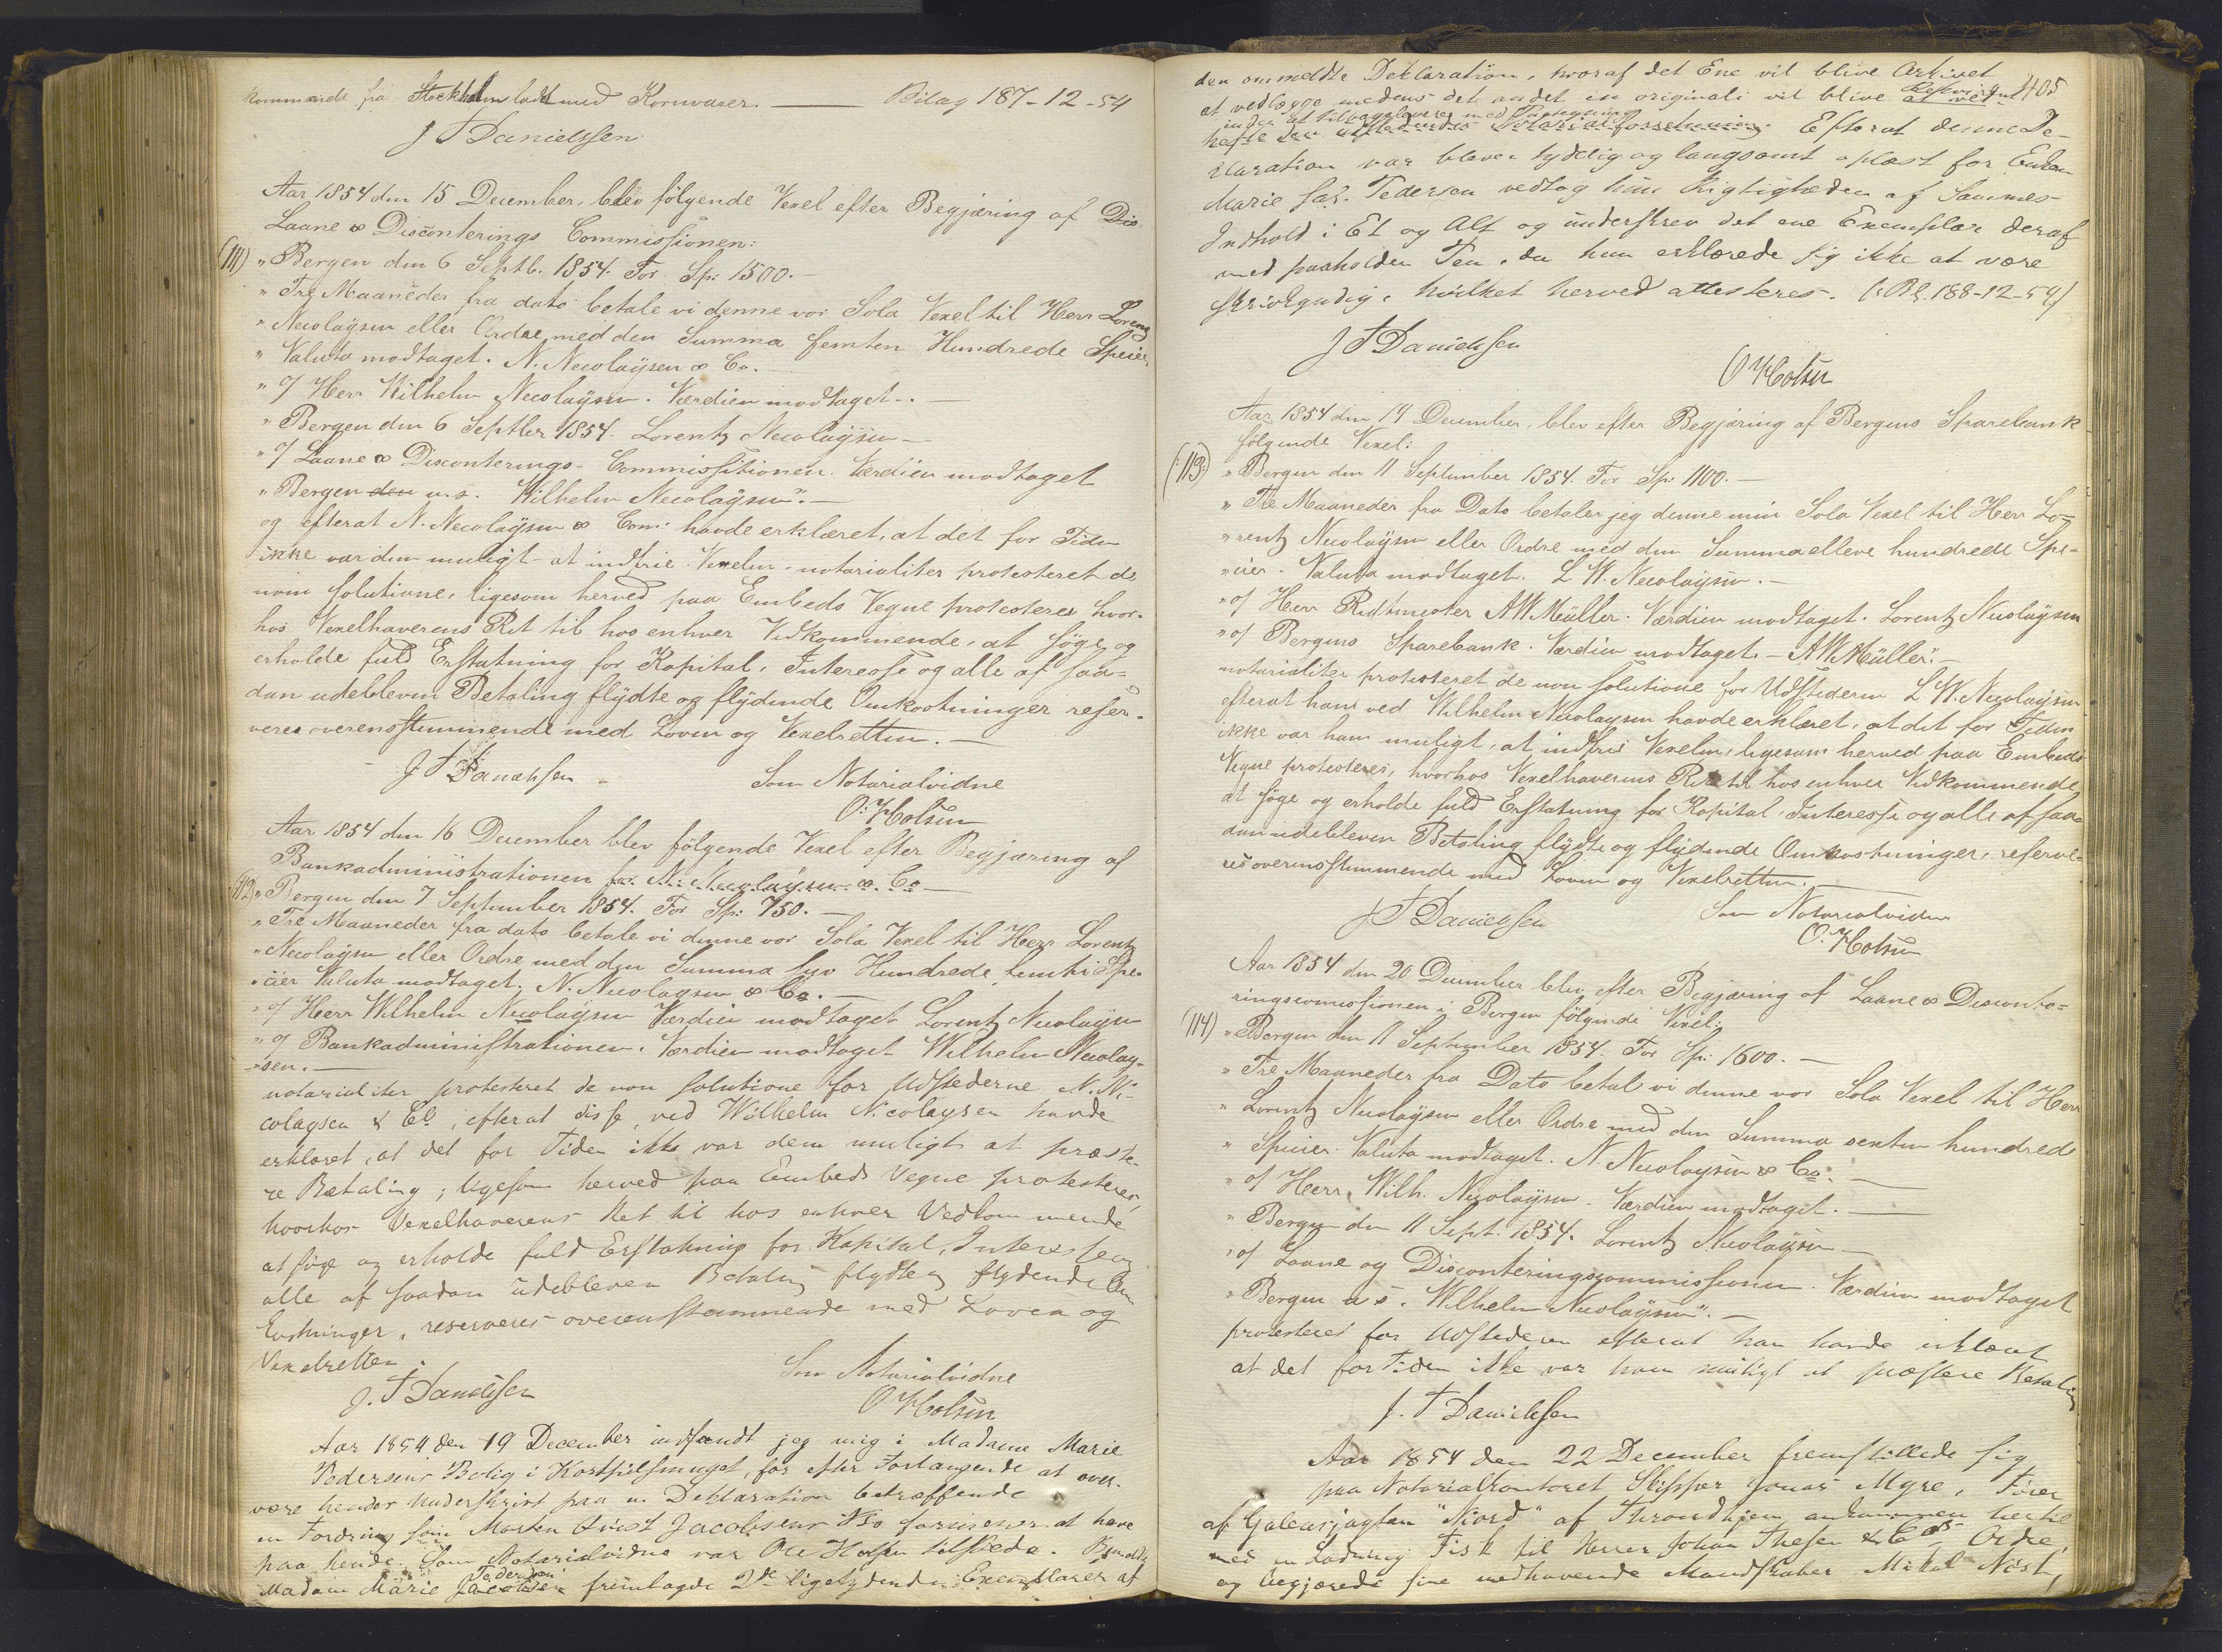 kommende fra Stockholm ladt med Kornvarer. — Bilag 187-12-54
J T Danielssen
Aar 1854 den 15 December, blev følgende Vexel efter Begjæring af Dis
Laane & Disconterings Commissionen:
(111) „Bergen den 6 Septb. 1854. For Sp: 1500.—
„Tre Maaneder fra dato betale vi denne vor Sola Vexel til Herr Lorentz
„Necolaÿsen eller Ordre med den Summa femten Hundrede Speier
„Valuta modtaget. N. Necolaÿsen & Co.—
„of Herr Wilhelm Necolaÿsen. Værdien modtaget.—
„Bergen den 6 Septber 1854. Lorentz Necolaÿsen—
„of Laane & Disconterings-Commissitionen. Værdien modtaget
„Bergen den u.s. Wilhelm Necolaÿsen".—
og efterat N. Necolaÿsen & Com: havde erklæret, at det for Tiden
ikke var dem muligt at indfrie Vexelen, notarialiter protesteret de
non solutione, ligesom herved paa Embeds Vegne protesteres hvor-
hos Vexelhaverens Ret til hos enhver Vedkommende, at søge og
erholde fuld Erstatning for Kapital, Interesse og alle af saa-
dan udebleven Betaling flÿdte og flÿdende Omkostninger reser-
veres overensstemmende med Loven og Vexelretten.—
J T Danielssen Som Notarialvidne
O. Holsen
Aar 1854 den 16 December blev følgende Vexel efter Begjæring af
Bankadministrationen for N. Necolaÿsen & Co—
(112) „Bergen den 7 September 1854. For Sp: 750.—
„Tre Maaneder fra dato betale vi denne vor Sola Vexel til Herr Lorentz
„Necolaÿsen eller Ordre med den Summa syv Hundrede femti Spe-
„cier Valuta modtaget. N. Necolaysen & Co.—
„of Herr Wilhelm Necolaÿsen Værdien modtaget Lorentz Necolaÿsen
„of Bankadministrationen. Værdien modtaget Wilhelm Necolay-
„sen.—
notarialiter protesteret de non solutione for Udstederne N. Ni-
colaysen & Co, efterat disse, ved Wilhelm Nicolaysen havde
erklæret, at det for Tiden ikke var dem muligt at præste-
re Betaling; ligesom herved paa Embeds Vegne protesteres,
hvorhos Vexelhaverens Ret til hos enhver Vedkommende
at søge og erholde fuld Erstatning for Kapital, Interesse og
alle af saadan udebleven Betaling flydte og flydende Om
kostninger, reserveres overensstemmende med Loven og
Vexelretten.
J. T Danielssen Som Notarialvidne
O Holsen
Aar 1854 den 19 December indfandt jeg mig i Madame Marie
Pedersens Bolig i Kortspilsmuget, for efter Forlangende at over-
være hendes Underskrivt paa en Deklaration betræffende
en Fordring som Morten Jacobsens formener at have
paa hende. Som Notarialvidne var Ole Holsen tilstede. Bemeldte
Pedersen
Madam Marie Jacobsen fremlagde 2de ligelydende Exemplarer af
405
den ommeldte Deklaration, hvoraf det Ene vil blive Arkivet
at vedlægge medens det andet in originali vil blive at ved
inden at tilbageleveres med Paategning
hæfte den udstedendes Notarialforretning. Efterat denne De-
klaration var bleven tydelig og langsomt oplæst for Enken
Marie sal. Pedersen vedtog hun Rigtigheden af Sammes
Indhold i Et og Alt og underskrev det ene Exemplar deraf
med paaholden Pen, da hun erklærede sig ikke at være
skrivkyndig, hvilket herved attesteres. (: Blg. 188-12-54)
J T Danielssen
O Holsen
Aar 1854 den 19 December, blev efter Begjæring af Bergens Sparebank
følgende Vexel:
(113) „Bergen den 11 September 1854. For Sp: 1100.—
„Tre Maaneder fra Dato betaler jeg denne min Sola Vexel til Herr Lo-
„rentz Necolaÿsen eller Ordre med den Summa elleve hundrede Spe-
„cier. Valuta modtaget. L W. Necolaÿsen.—
„of Herr Ridtmester A W. Müller. Værdien modtaget. Lorentz Necolaÿsen
„of Bergens Sparebank. Værdien modtaget.— A W. Müller".—
notarialiter protesteret de non solutione for Udstederen L. W. Necolaÿsen
efterat han ved Wilhelm Necolaysen havde erklæret, at det for Tiden
ikke var ham muligt, at indfrie Vexelen, ligesom herved paa Embeds
Vegne protesteres, hvorhos Vexelhaverens Ret til hos enhver Vedkommende
at søge og erholde fuld Erstatning for Kapital, Interesse og alle af saa-
dan udebleven Betaling flÿdte og flÿdende Omkostninger, reserve-
res overensstemmende med Loven og Vexelretten.—
J T Danielssen Som Notarialvidne
O. Holsen
Aar 1854 den 20 December blev efter Begjæring af Laane & Disconte-
ringscomissionen i Bergen følgende Vexel:
(114) „Bergen den 11 September 1854. For Sp: 1600.—
„Tre Maaneder fra Dato betale vi denne vor Sola Vexel til Herr
„Lorentz Necolaÿsen eller Ordre med den Summa sexten hundrede
„Specier. Valuta modtaget. N. Necolaysen & Co.—
„of Herr Wilh. Necolaÿsen. Værdien modtaget.—
„Bergen den 11 Sept. 1854. Lorentz Necolaÿsen—
„of Laane og Disconteringscommissionen. Værdien modtaget
„Bergen u.s. Wilhelm Necolaÿsen".—
protesteret for Udstederen efterat han havde erklæret
at det for Tiden ikke var ham muligt at præstere Betaling
J. T Danielssen
Aar 1854 den 22 December fremstillede sig
paa Notarialkontoret Skipper Jonas Myre, Fører
af Galeasjagten "Niord" af Throndhjem ankommen hertil
med en Ladning Fisk til Herrer Johan Thesen & Co's Ordre,
og begjærede sine medhavende Mandskaber Mikal Nést,